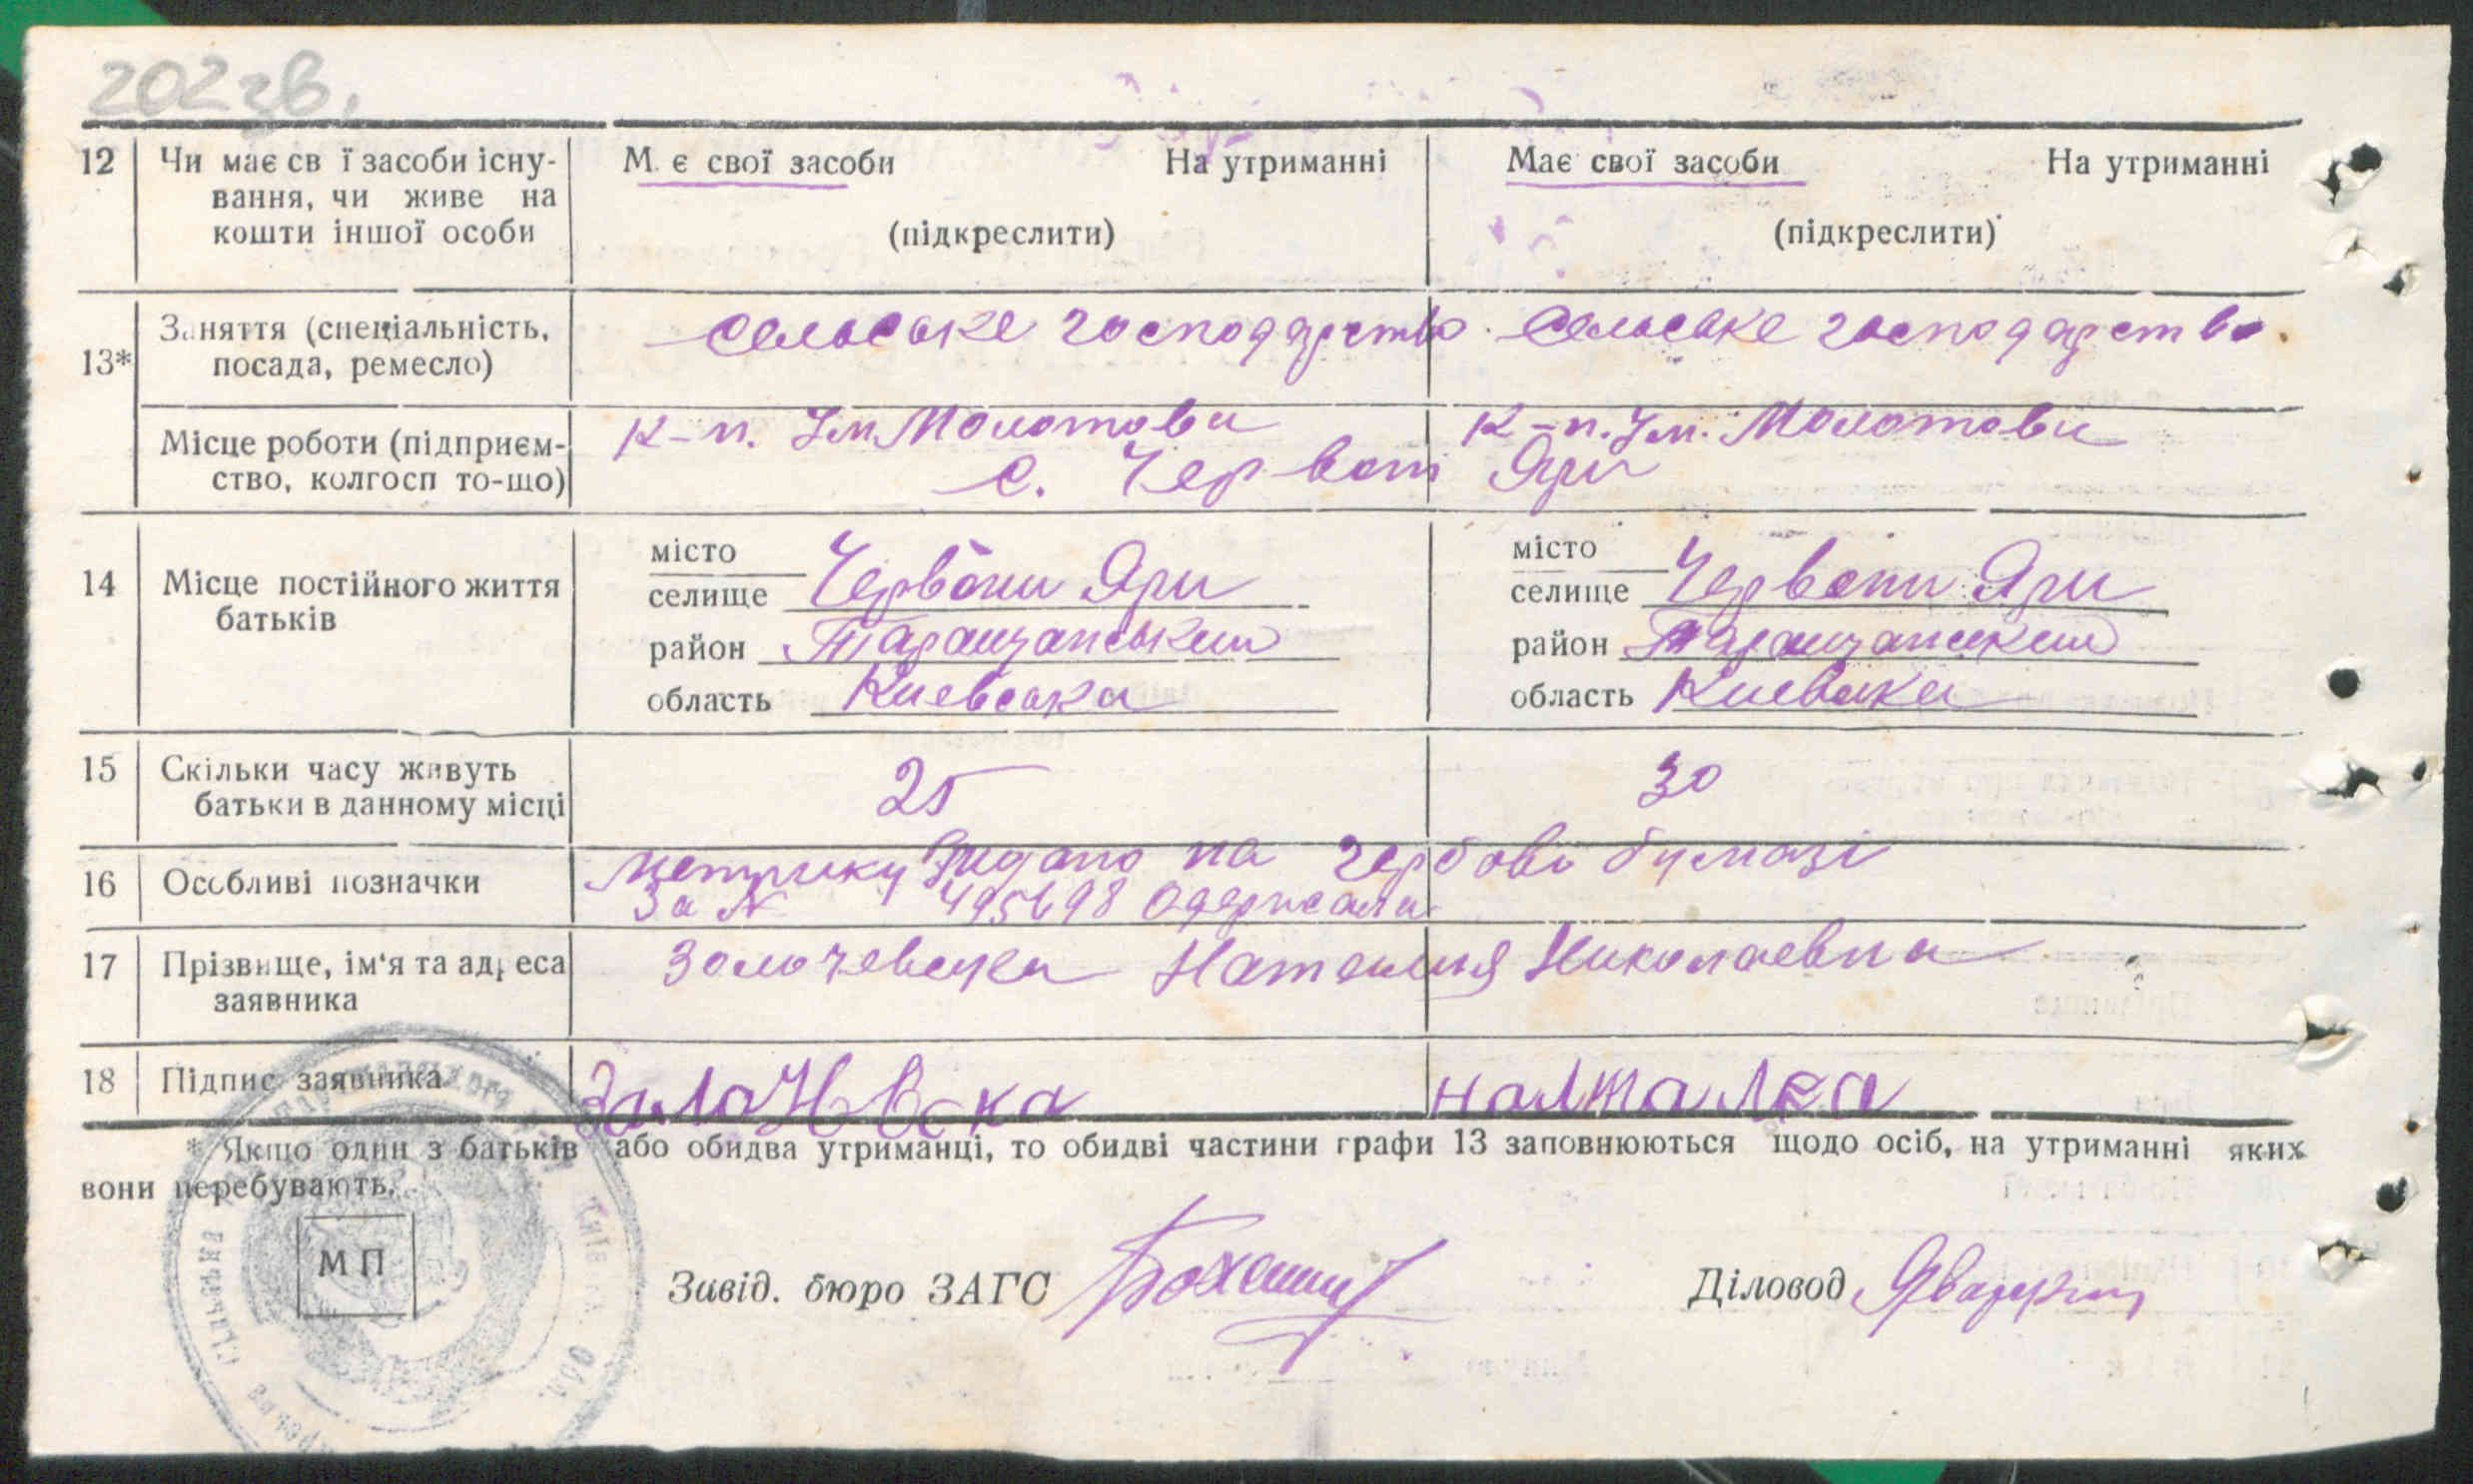 202 зв.
12 Чи має св ї засоби існу- М. є свої засоби На утриманні Має свої засоби На утриманні
вання, чи живе на
кошти іншої особи (підкреслити) (підкреслити)
13* Заняття (спеціальність, сельське господарство. сельське господарство.
посада, ремесло)
Місце роботи (підприєм- к-п. Ім Молотова к-п. Ім. Молотова
ство, колгосп то-що) с. Червоні Яри
14 Місце постійного життя батьків
місто
селище Червони Яри
район Таращанський
область Киевська
місто
селище Червони Яри
район Таращанский
область Киевська
15 Скільки часу живуть 25 30
батьки в данному місці
16 Особливі позначки метрику видано на гербові бумазі
За № 495698 Одержала
17 Прізвище, ім'я та адреса Золочевска Наталия Николаевна
заявника
18 Підпис заявника
* Якщо один з батьків або обидва утриманці, то обидві частини графи 13 заповнюються щодо осіб, на утриманні яких
вони перебувають.
МП
Завід. бюро ЗАГС Діловод